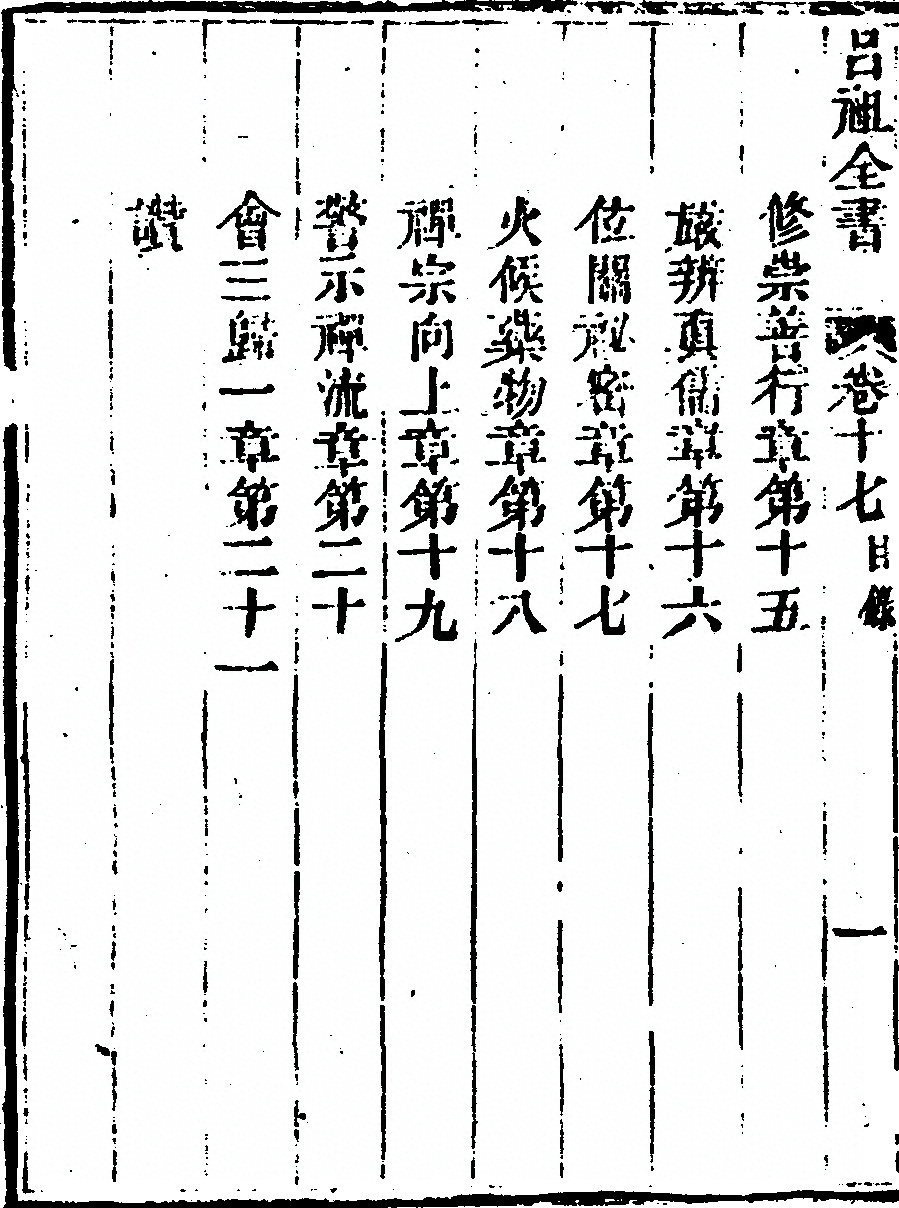 呂祖全書 卷十七 目錄 一
修崇善行章第十五
嚴辨真儒章第十六
位關祕密章第十七
火候藥物章第十八
禪宗向上章第十九
警示禪流章第二十
會三歸一章第二十一
讚